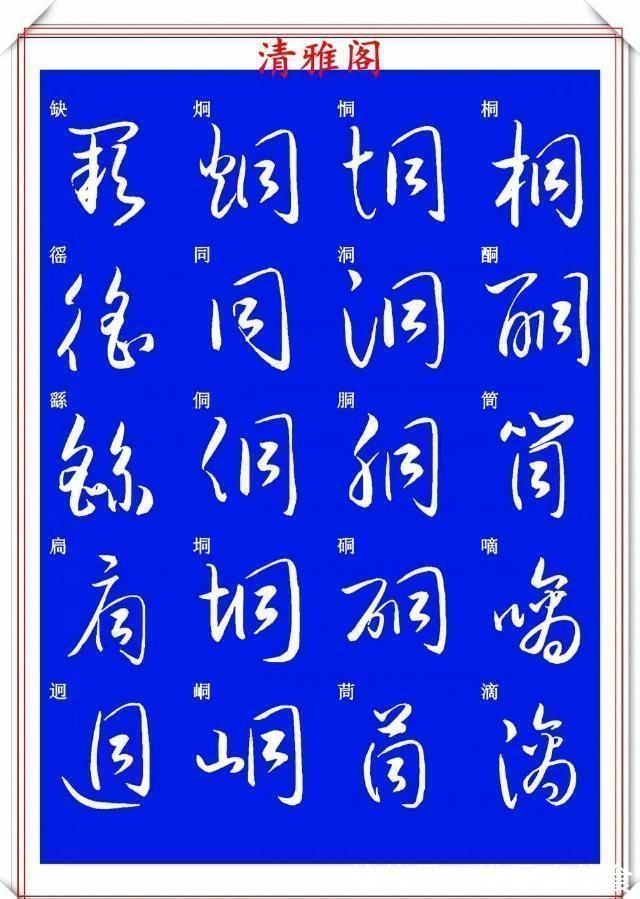 清雅阁
缺 炯 恫 桐
缺 炯 恫 桐
徭 同 洞 酮
徭 同 洞 酮
繇 侗 胴 筒
繇 侗 胴 筒
扃 垌 硐 嘀
扃 垌 硐 嘀
迥 峒 茼 滴
迥 峒 茼 滴